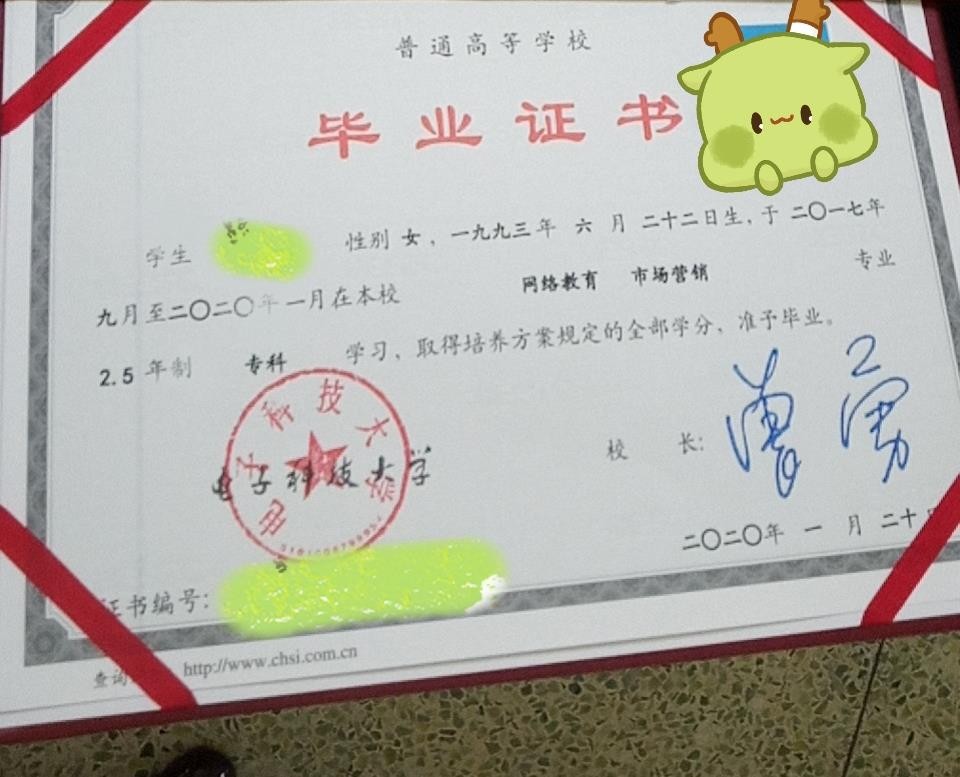 普通高等学校
毕业证书
学生 性别 女，一九九三年 六 月 二十二日生，于 二〇一七年
九月至二〇二〇年 一月在本校 网络教育 市场营销 专业
2.5 年制 专科 学习，取得培养方案规定的全部学分，准予毕业。
电子科技大学
电子科技大学
校 长：曾勇
证书编号：
二〇二〇年 一 月 二十
查询 http://www.chsi.com.cn